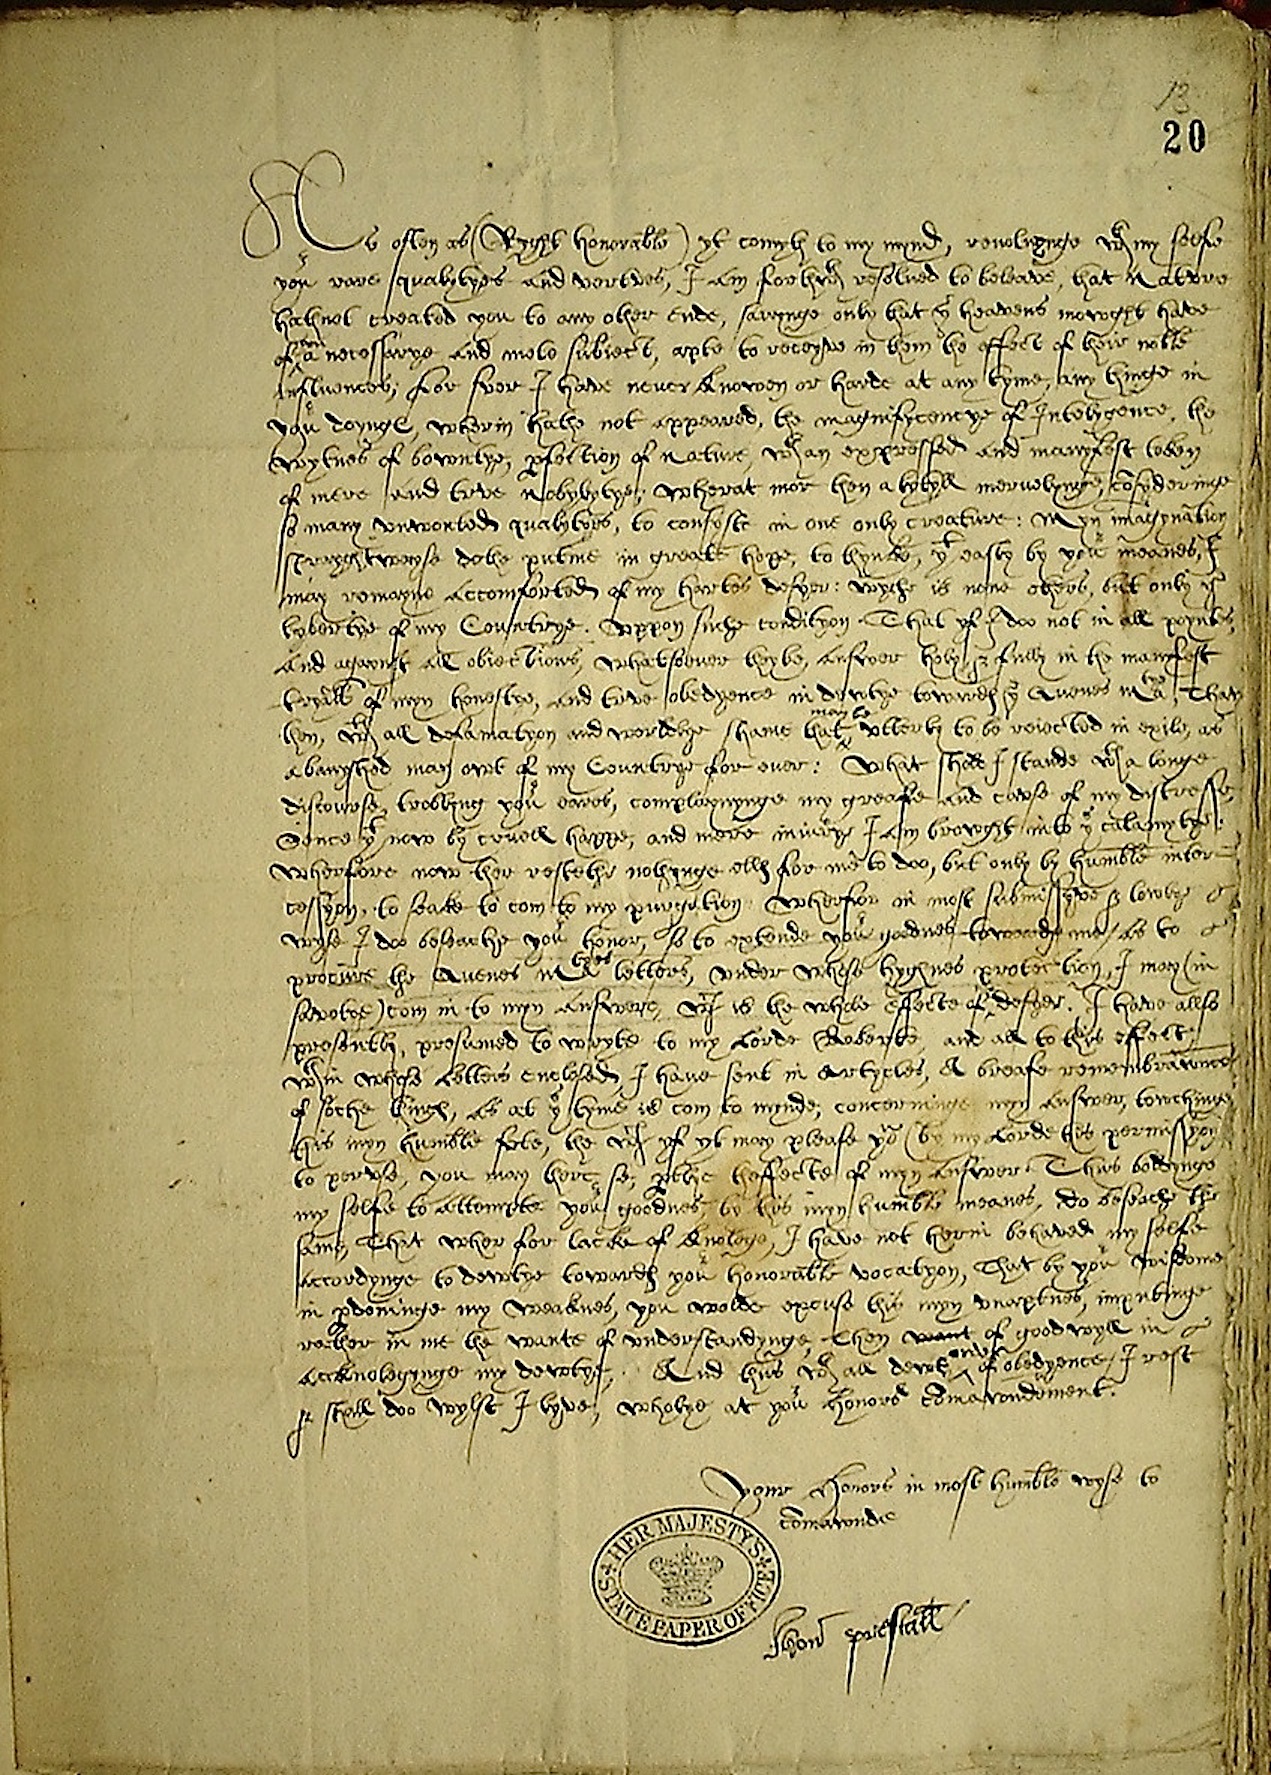 13
20
As often as (Ryght honorable) yt comyth to my mynd, revolvynge wth my selfe
yor rare qualytyes and vertues, I am forthwth resolved to beleave, that Nature
hathnot created you to any other ende, savynge only that ye heavens mowght have
of a necessarye and mete subiect, apte to receyve in them the effect of their noble
influences; For sver I have never knowen or harde at any tyme, any thinge in
yor doynge, wherin hathe not appeared, the magnifycencye of Intelygence, the
wytnes of bowntye, pfection of nature, wth an expressed and manyfest token
of mere and trve nobylytye; Wherat mor then a lytyll mervelynge, cosyderinge
so many vnwonted qualytyes, to consyste in one only creature: Myn imagynation
strayghtwayse dothe put me in greate hope, to thynke, yt easly by yor meanes, I
may remayne accomforted of my hartes desyer: wyche is none other, but only ye
lybertye of my Countrye. Vppon suche condityon That yf I doo not in all poyntes,
and agaynst all obiections, whatsoever they be, answer holy & fully in the manyfest
tryall of myn honestye, and trve obedyence in dewtye towardes ye Quenes Matye, That
then, wth all defamatyon and worldlye shame that I may be vtterly to be reiected in exile, as
a banyshed man owt of my Countrye for ever: What shall I stande wth a longe
discourse, trobling yor eares, complaynynge my greafe and cavse of my distresse,
Sence yt now by crvell happe, and mere iniurye I am browght into ys calamytye:
Wherfore now ther restethe nothynge elles for me to doo, but only by humble inter-
cessyon, to seake to com to my purgation. Wherfor in most submissyve & lowlye
wyse I doo beseache yor honor, so to extende yor goodnes towardes me, as to
procure the Quenes Matyes letters, vnder whose hyghnes protection, I may (in
savetye) com in to myn answere, wch is the whole effecte of desyer. I have allso
presently, presumed to wryte to my Lorde Roberte, and all to this effect;
wthin whose letters enclosed, I have sent in Artycles, A breafe remembrawnce
of soche things, as at ys tyme is com to mynde, concerninge myn answer, towchinge
this myn humble sute, the wch yf yt may please yow (by my Lorde his permissyon
to pervse, you may there se, ptlie theffecte of myn answer. Thus boldynge
my selfe to attempte yor goodnes, by this myn humble meanes, do beseache the
same, That wher for lacke of knolege, I have not herin behaved my selfe
accordynge to dewtye towardes yor honorable vocatyon, That by yor wisdome
in pdoninge my weaknes, you wolde excuse this myn vnaptnes, imputinge
rather in me the wante of vnderstandynge, then want of good wyll in
acknoleginge my dewtye. And thus wth all dewe of obedyence, I rest
& shall doo wylst I lyve, wholye at yor honors comawndement.
Your honors in most humble wyse to
comawnde
HER MAJESTY'S
STATE PAPER OFFICE
Jhon prestall